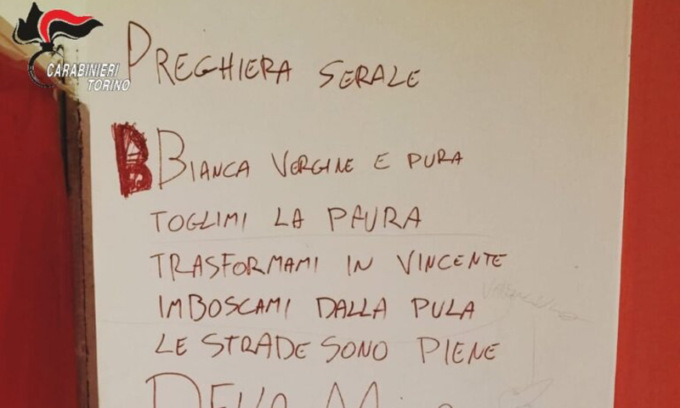 CARABINIERI
TORINO
PREGHIERA SERALE
BIANCA VERGINE E PURA
TOGLIMI LA PAURA
TRASFORMAMI IN VINCENTE
IMBOSCAMI DALLA PULA
LE STRADE SONO PIENE